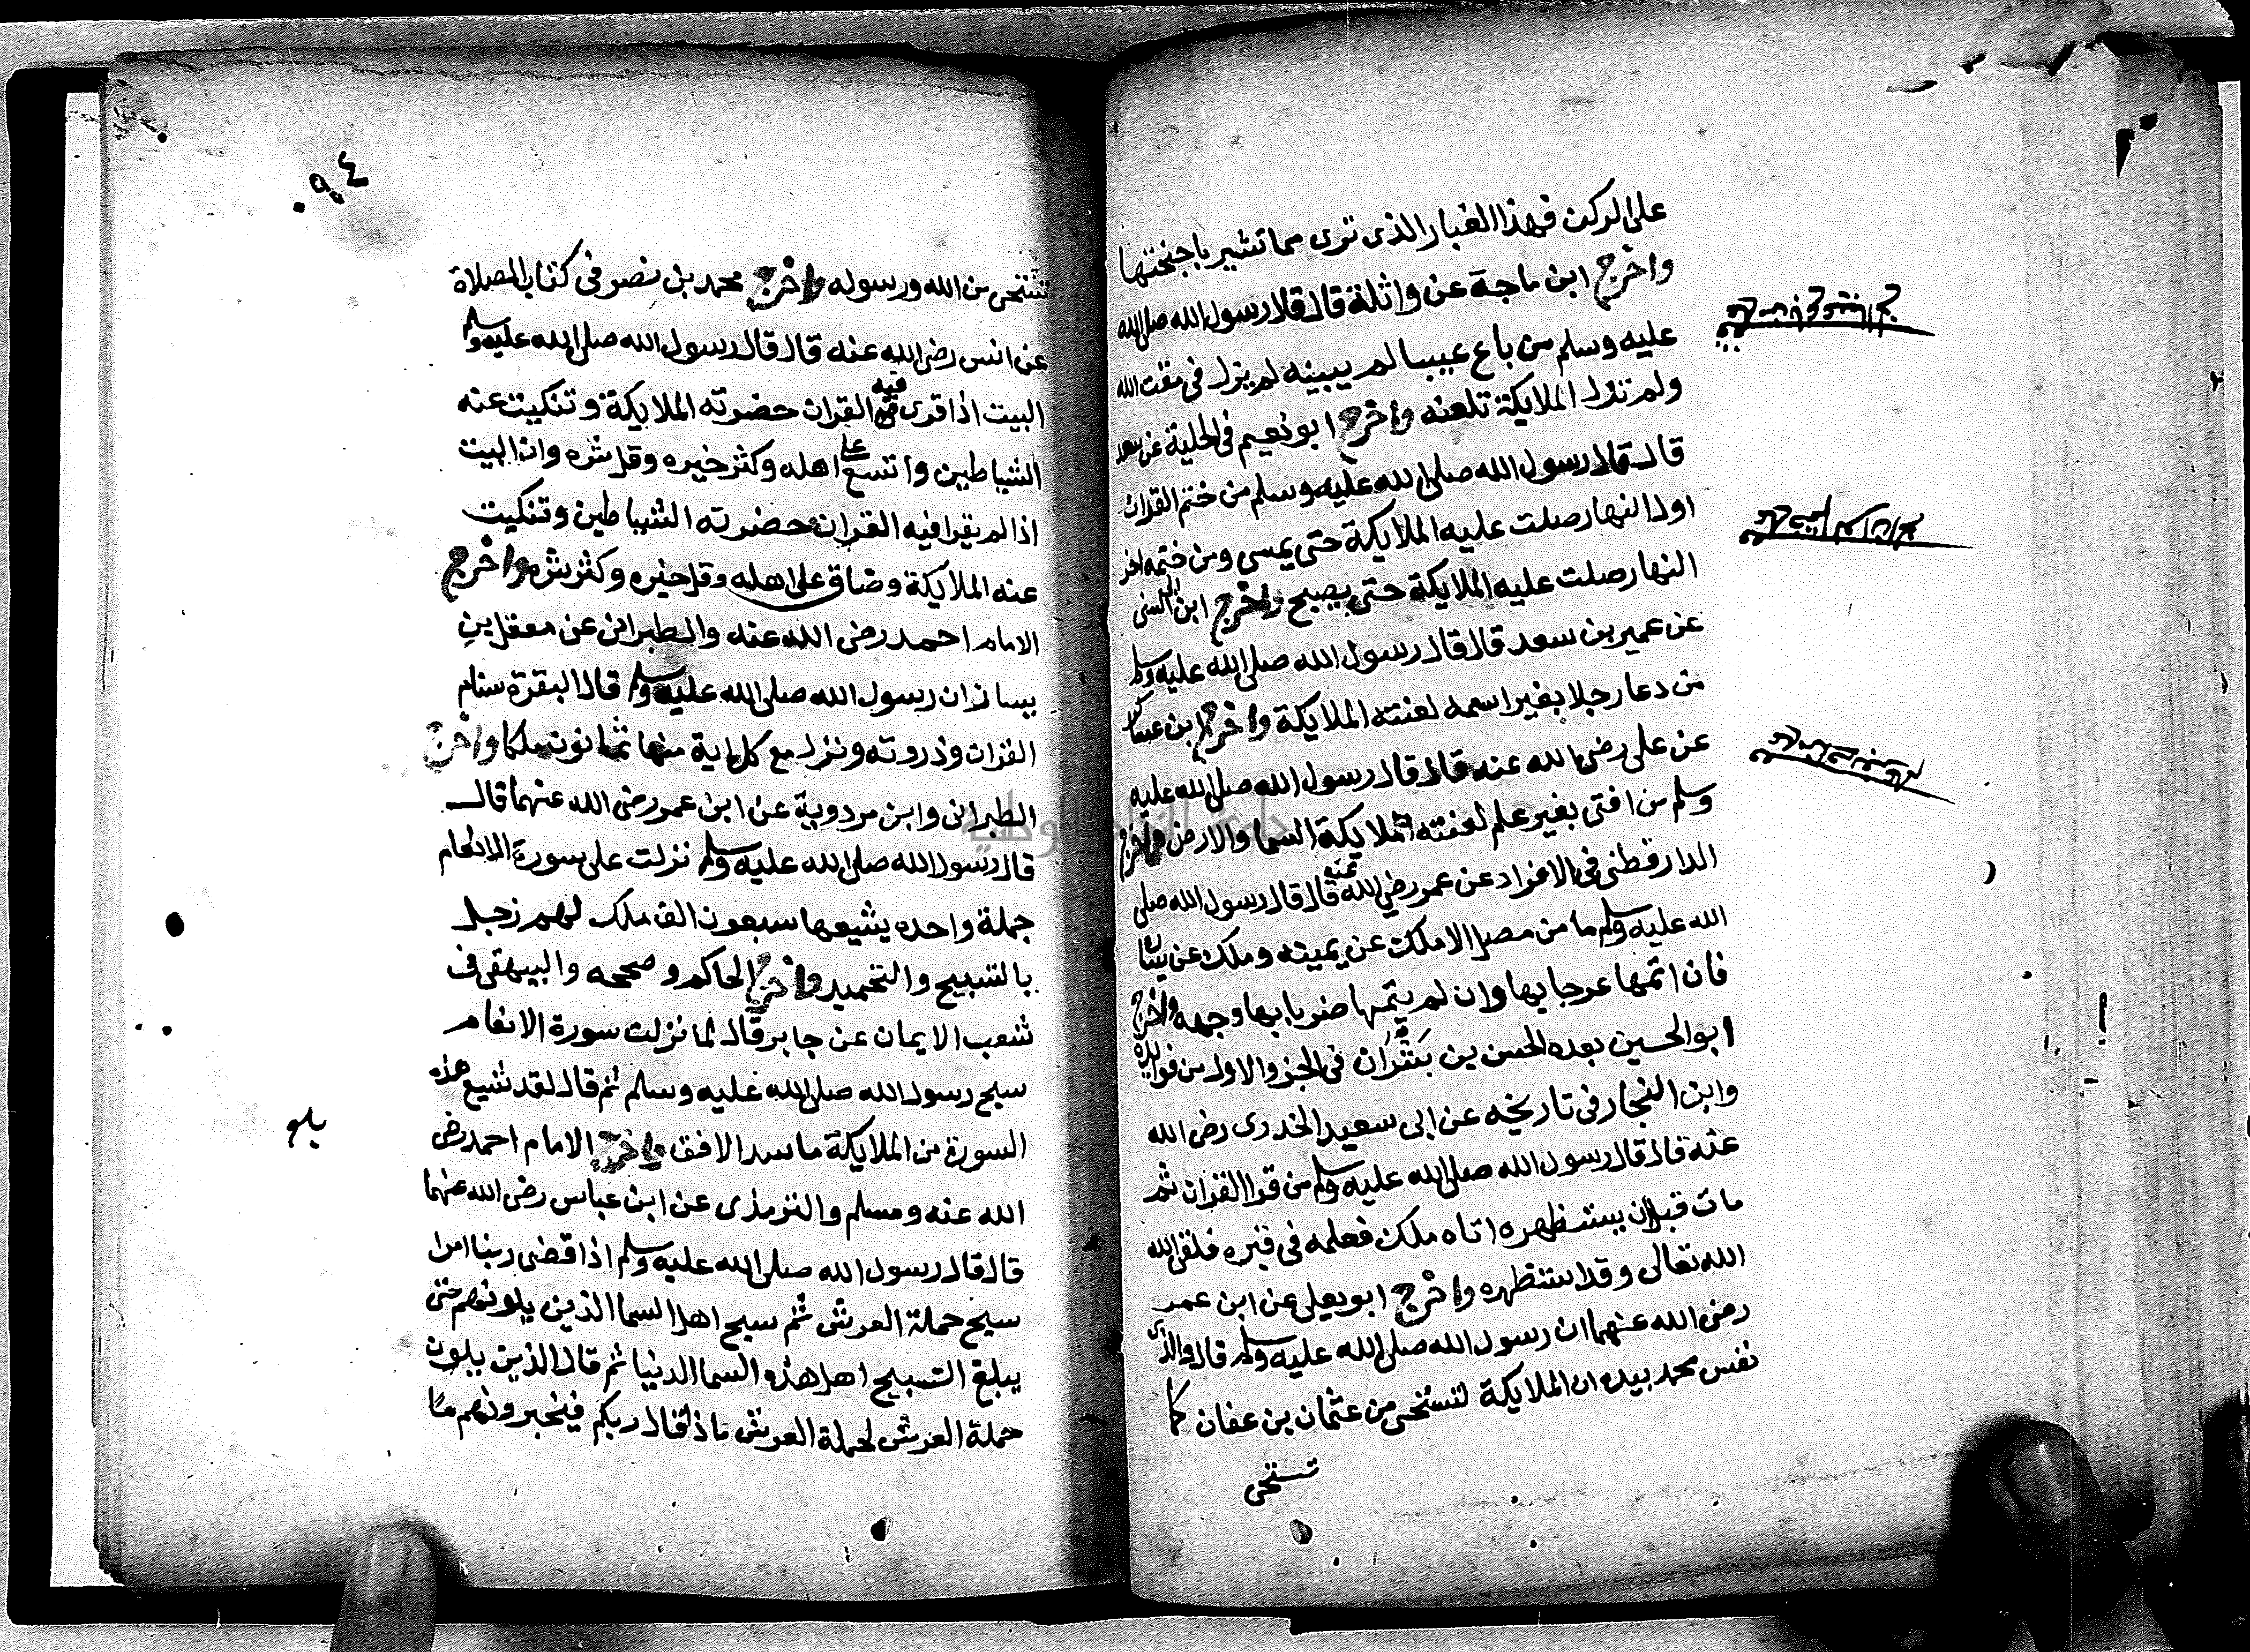 على الركن فهذا الغبار الذى ترى مما تثير باجنحتها
واخرج ابن ماجة عن واثلة قال قال رسول الله صلى الله
عليه وسلم من باع عيبا لم يبينه لم يزل فى مقت الله
ولم تزل الملايكة تلعنه واخرج ابو نعيم فى الحلية عن سعد
قال قال رسول الله صلى الله عليه وسلم من ختم القران
اول النهار صلت عليه الملايكة حتى يمسى ومن ختمه اخر
النهار صلت عليه الملايكة حتى يصبح واخرج ابن السنى
عن عمير بن سعد قال قال رسول الله صلى الله عليه وسلم
من دعا رجلا بغير اسمه لعنته الملايكة واخرج ابن عساكر
عن على رضى الله عنه قال قال رسول الله صلى الله عليه
وسلم من افتى بغير علم لعنته ملايكة السما والارض واخرج
الدارقطنى فى الافراد عن عمر رضى الله عنه قال قال رسول الله صلى
الله عليه وسلم ما من مصل الا ملك عن يمينه وملك عن يساره
فان اتمها عرجا بها وان لم يتمها ضربا بها وجهه واخرج
ابو الحسين بعده الحسن بن بشران فى الجزو الاول من فوايده
وابن النجار فى تاريخه عن ابى سعيد الخدرى رضى الله
عنه قال قال رسول الله صلى الله عليه وسلم من قرا القران ثم
مات قبل ان يستظهره اتاه ملك فعلمه فى قبره فلقى الله
الله تعالى وقد استظهره واخرج ابو يعلى عن ابن عمر
رضى الله عنهما ان رسول الله صلى الله عليه وسلم قال والذى
نفس محمد بيده ان الملايكة لتستحى من عثمان بن عفان كما
تستحى
٩٤
تستحى من الله ورسوله واخرج محمد بن نصر فى كتاب الصلاة
عن انس رضى الله عنه قال قال رسول الله صلى الله عليه وسلم
البيت اذا قرى فيه القران حضرته الملايكة وتنكبت عنه
الشياطين واتسع على اهله وكثر خيره وقل شره وان البيت
اذا لم يقرا فيه القران حضرته الشياطين وتنكبت
عنه الملايكة وضاق على اهله وقل خيره وكثر شره واخرج
الامام احمد رضى الله عنه والطبرانى عن معقل بن
يسار ان رسول الله صلى الله عليه وسلم قال البقرة سنام
القران وذروته ونزل مع كل اية منها ثمانون ملكا واخرج
الطبرانى وابن مردوية عن ابن عمر رضى الله عنهما قال
قال رسول الله صلى الله عليه وسلم نزلت على سورة الانعام
جملة واحده يشيعها سبعون الف ملك لهم زجل
بالتسبيح والتحميد واخرج الحاكم وصححه والبيهقى فى
شعب الايمان عن جابر قال لما نزلت سورة الانعام
سبح رسول الله صلى الله عليه وسلم ثم قال لقد شيع هذه
السورة من الملايكة ما سد الافق واخرج الامام احمد رضى
الله عنه ومسلم والترمذى عن ابن عباس رضى الله عنهما
قال قال رسول الله صلى الله عليه وسلم اذا قضى ربنا امرا
سبح حملة العرش ثم سبح اهل السما الذين يلونهم حتى
يبلغ التسبيح اهل هذه السما الدنيا ثم قال الذين يلون
حملة العرش لحملة العرش ماذا قال ربكم فيخبرونهم ما